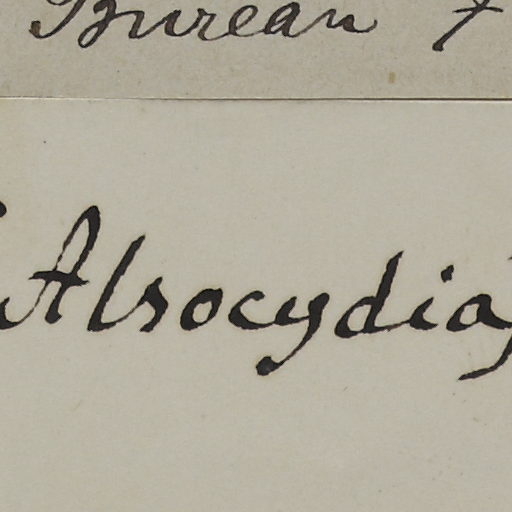 Bureau
(Alsocydia)